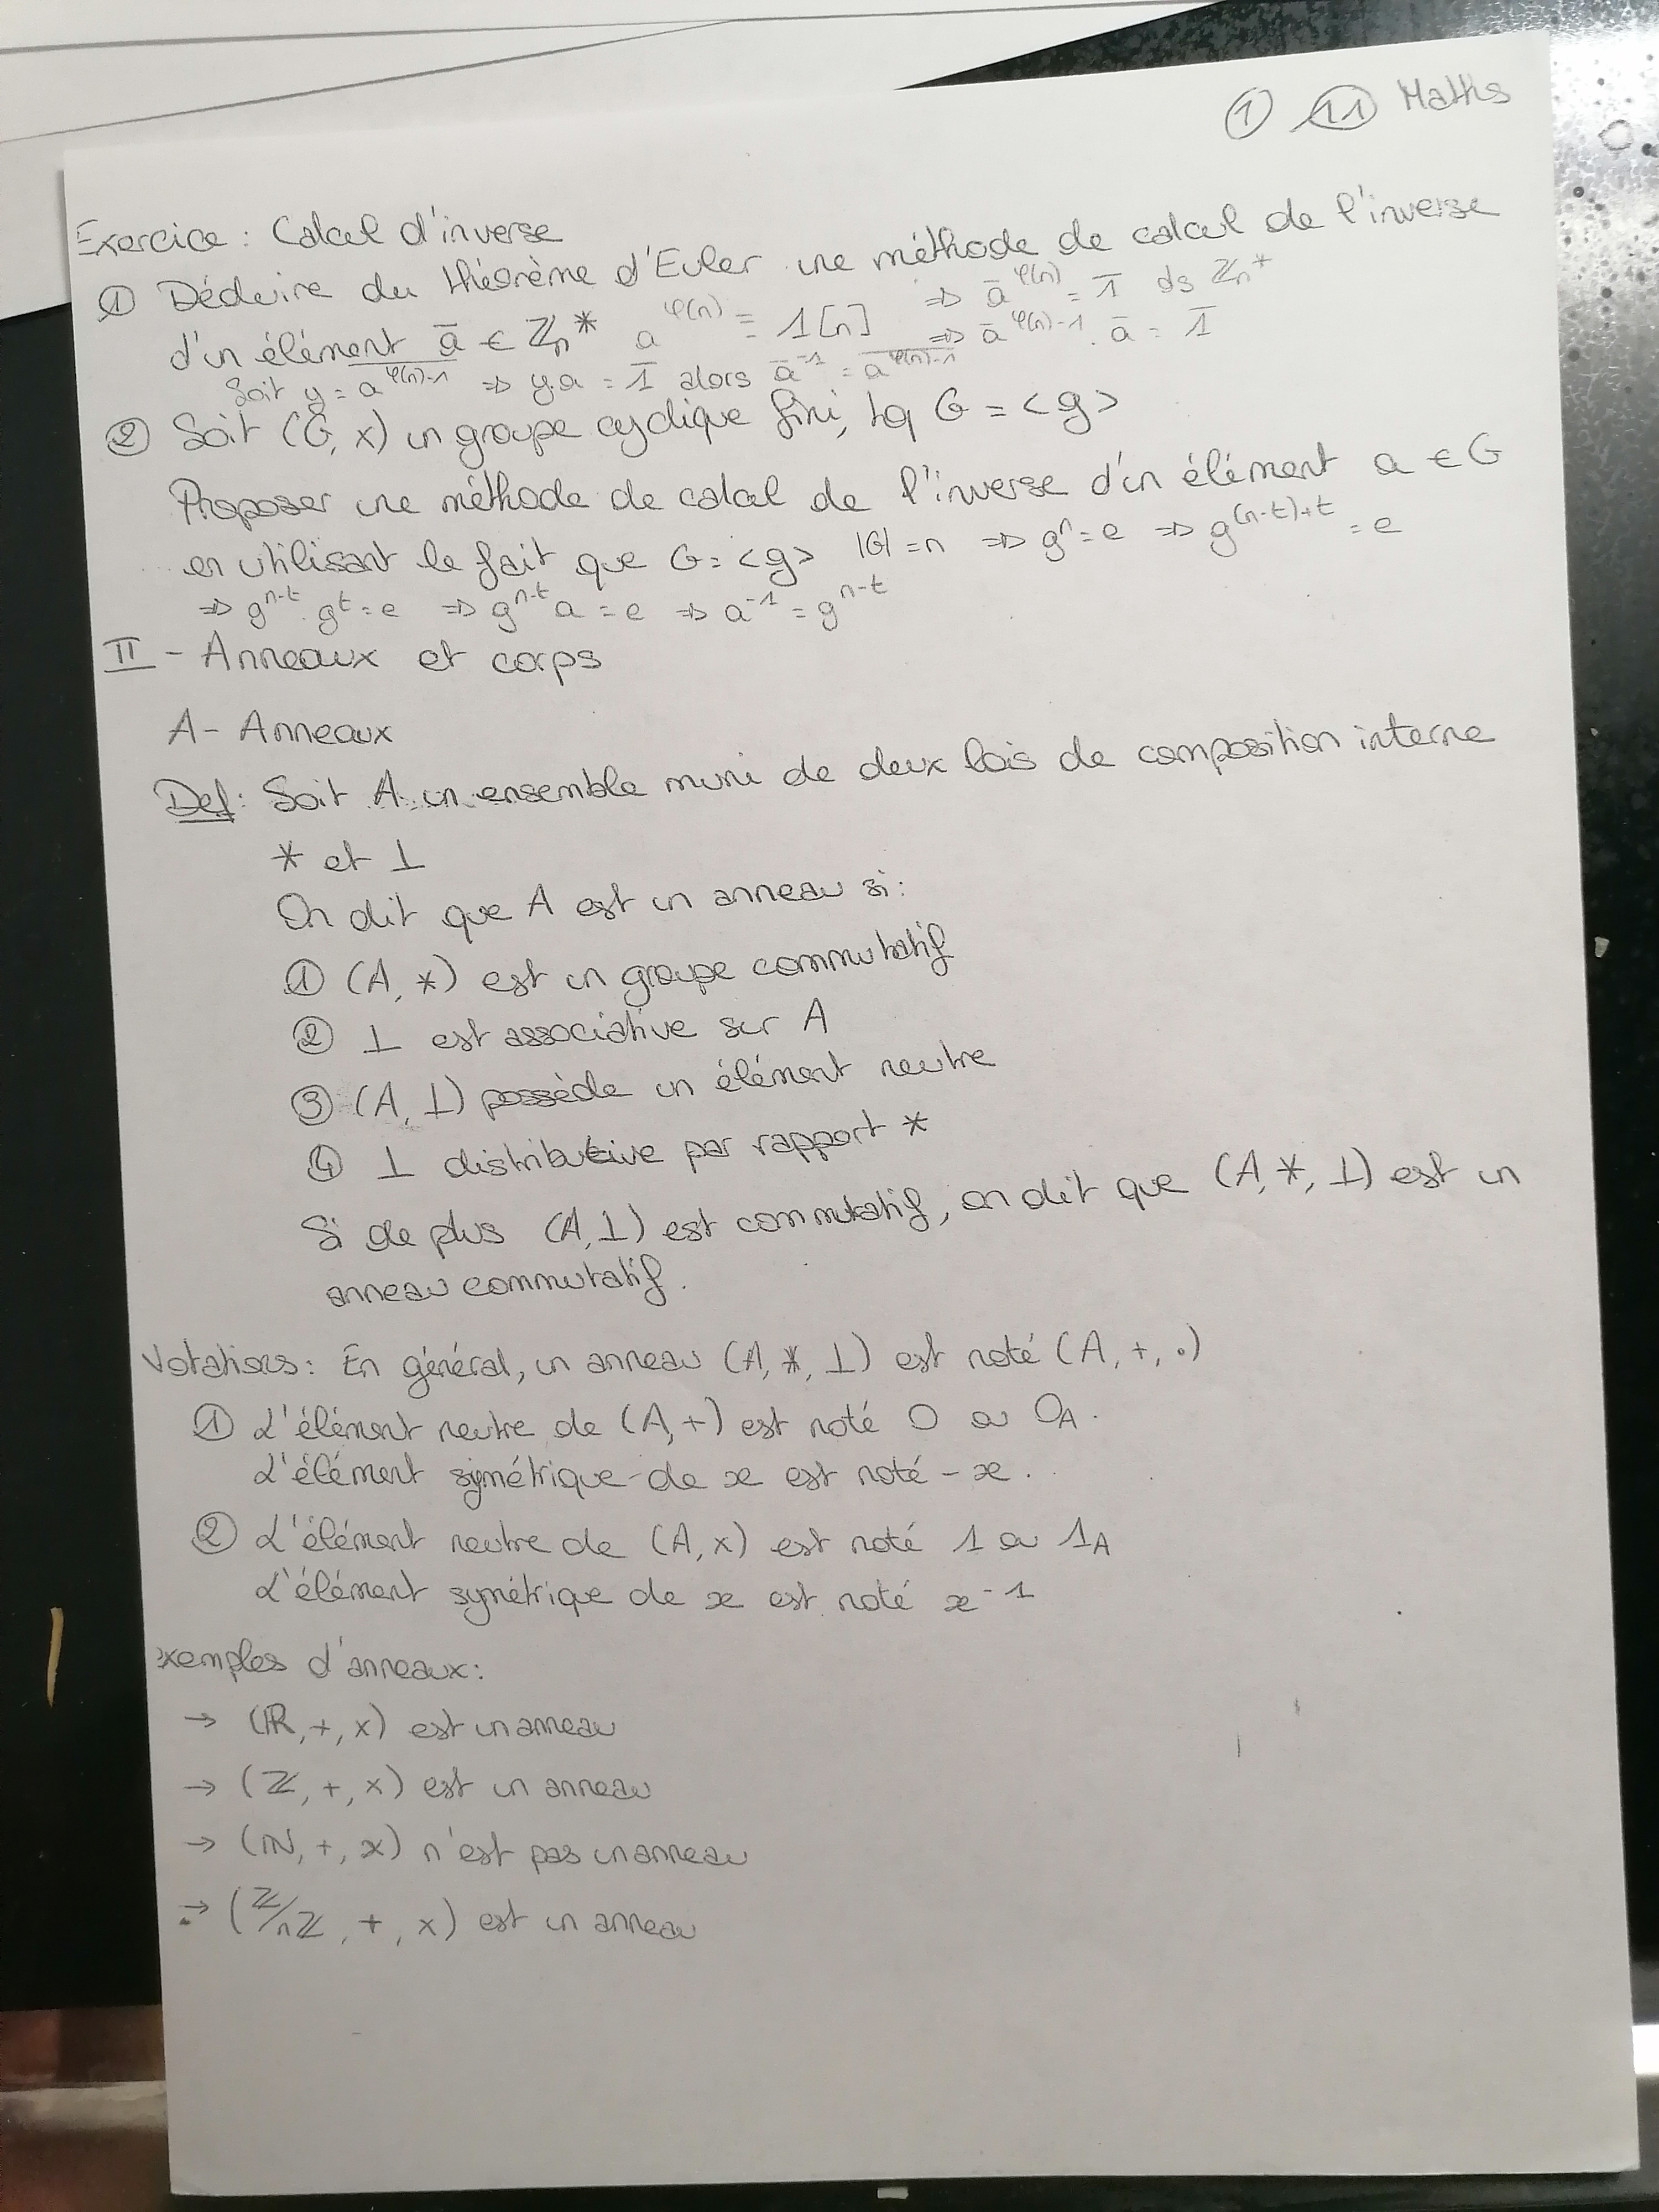 ① 11 Maths
Exercice : Calcul d'inverse
① Déduire du théorème d'Euler une méthode de calcul de l'inverse
d'un élément ā ∈ ℤn* a^φ(n) ≡ 1[n] ⇒ ā^φ(n) = 1̄ ds ℤn*
⇒ ā^φ(n)-1 . ā = 1̄
Soit y = a^φ(n)-1 ⇒ y.a = 1̄ alors ā^-1 = a^φ(n)-1
② Soit (G, x) un groupe cyclique fini, tq G = <g>
Proposer une méthode de calcul de l'inverse d'un élément a ∈ G
en utilisant le fait que G = <g> |G| = n ⇒ g^n = e ⇒ g^(n-t)+t = e
⇒ g^n-t . g^t = e ⇒ g^n-t a = e ⇒ a^-1 = g^n-t
II - Anneaux et corps
A - Anneaux
Def : Soit A un ensemble muni de deux lois de composition interne
* et ⊥
On dit que A est un anneau si :
① (A, *) est un groupe commutatif
② ⊥ est associative sur A
③ (A, ⊥) possède un élément neutre
④ ⊥ distributive par rapport *
Si de plus (A, ⊥) est commutatif, on dit que (A, *, ⊥) est un
anneau commutatif.
Notations : En général, un anneau (A, *, ⊥) est noté (A, +, .)
① L'élément neutre de (A, +) est noté 0 ou 0A.
L'élément symétrique de x est noté -x.
② L'élément neutre de (A, x) est noté 1 ou 1A
L'élément symétrique de x est noté x^-1
xemples d'anneaux :
→ (ℝ, +, x) est un anneau
→ (ℤ, +, x) est un anneau
→ (ℕ, +, x) n'est pas un anneau
→ (ℤ/nℤ, +, x) est un anneau